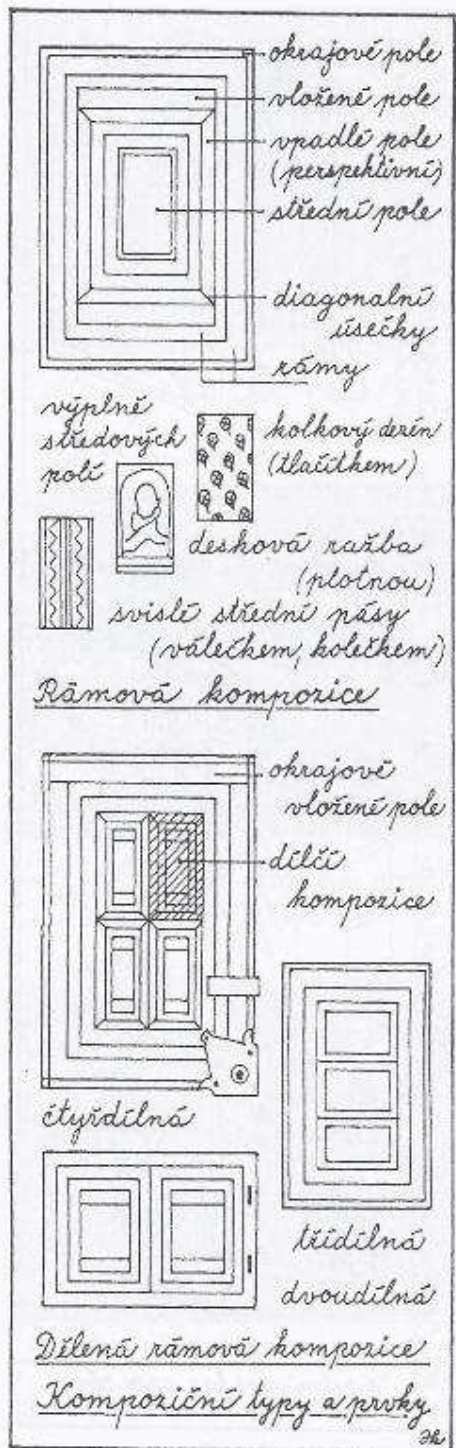 okrajové pole
vložené pole
vpadlé pole
(perspektivní)
střední pole
diagonalní
úsečky
rámy
výplně
středových
polí
kolkový dezín
(tlačítkem)
desková ražba
(plotnou)
svislé střední pásy
(válečkem, kolečkem)
Rámová kompozice
okrajové
vložené pole
dílčí
kompozice
čtyřdílná
třídílná
dvoudílná
Dělená rámová kompozice
Kompoziční typy a prvky